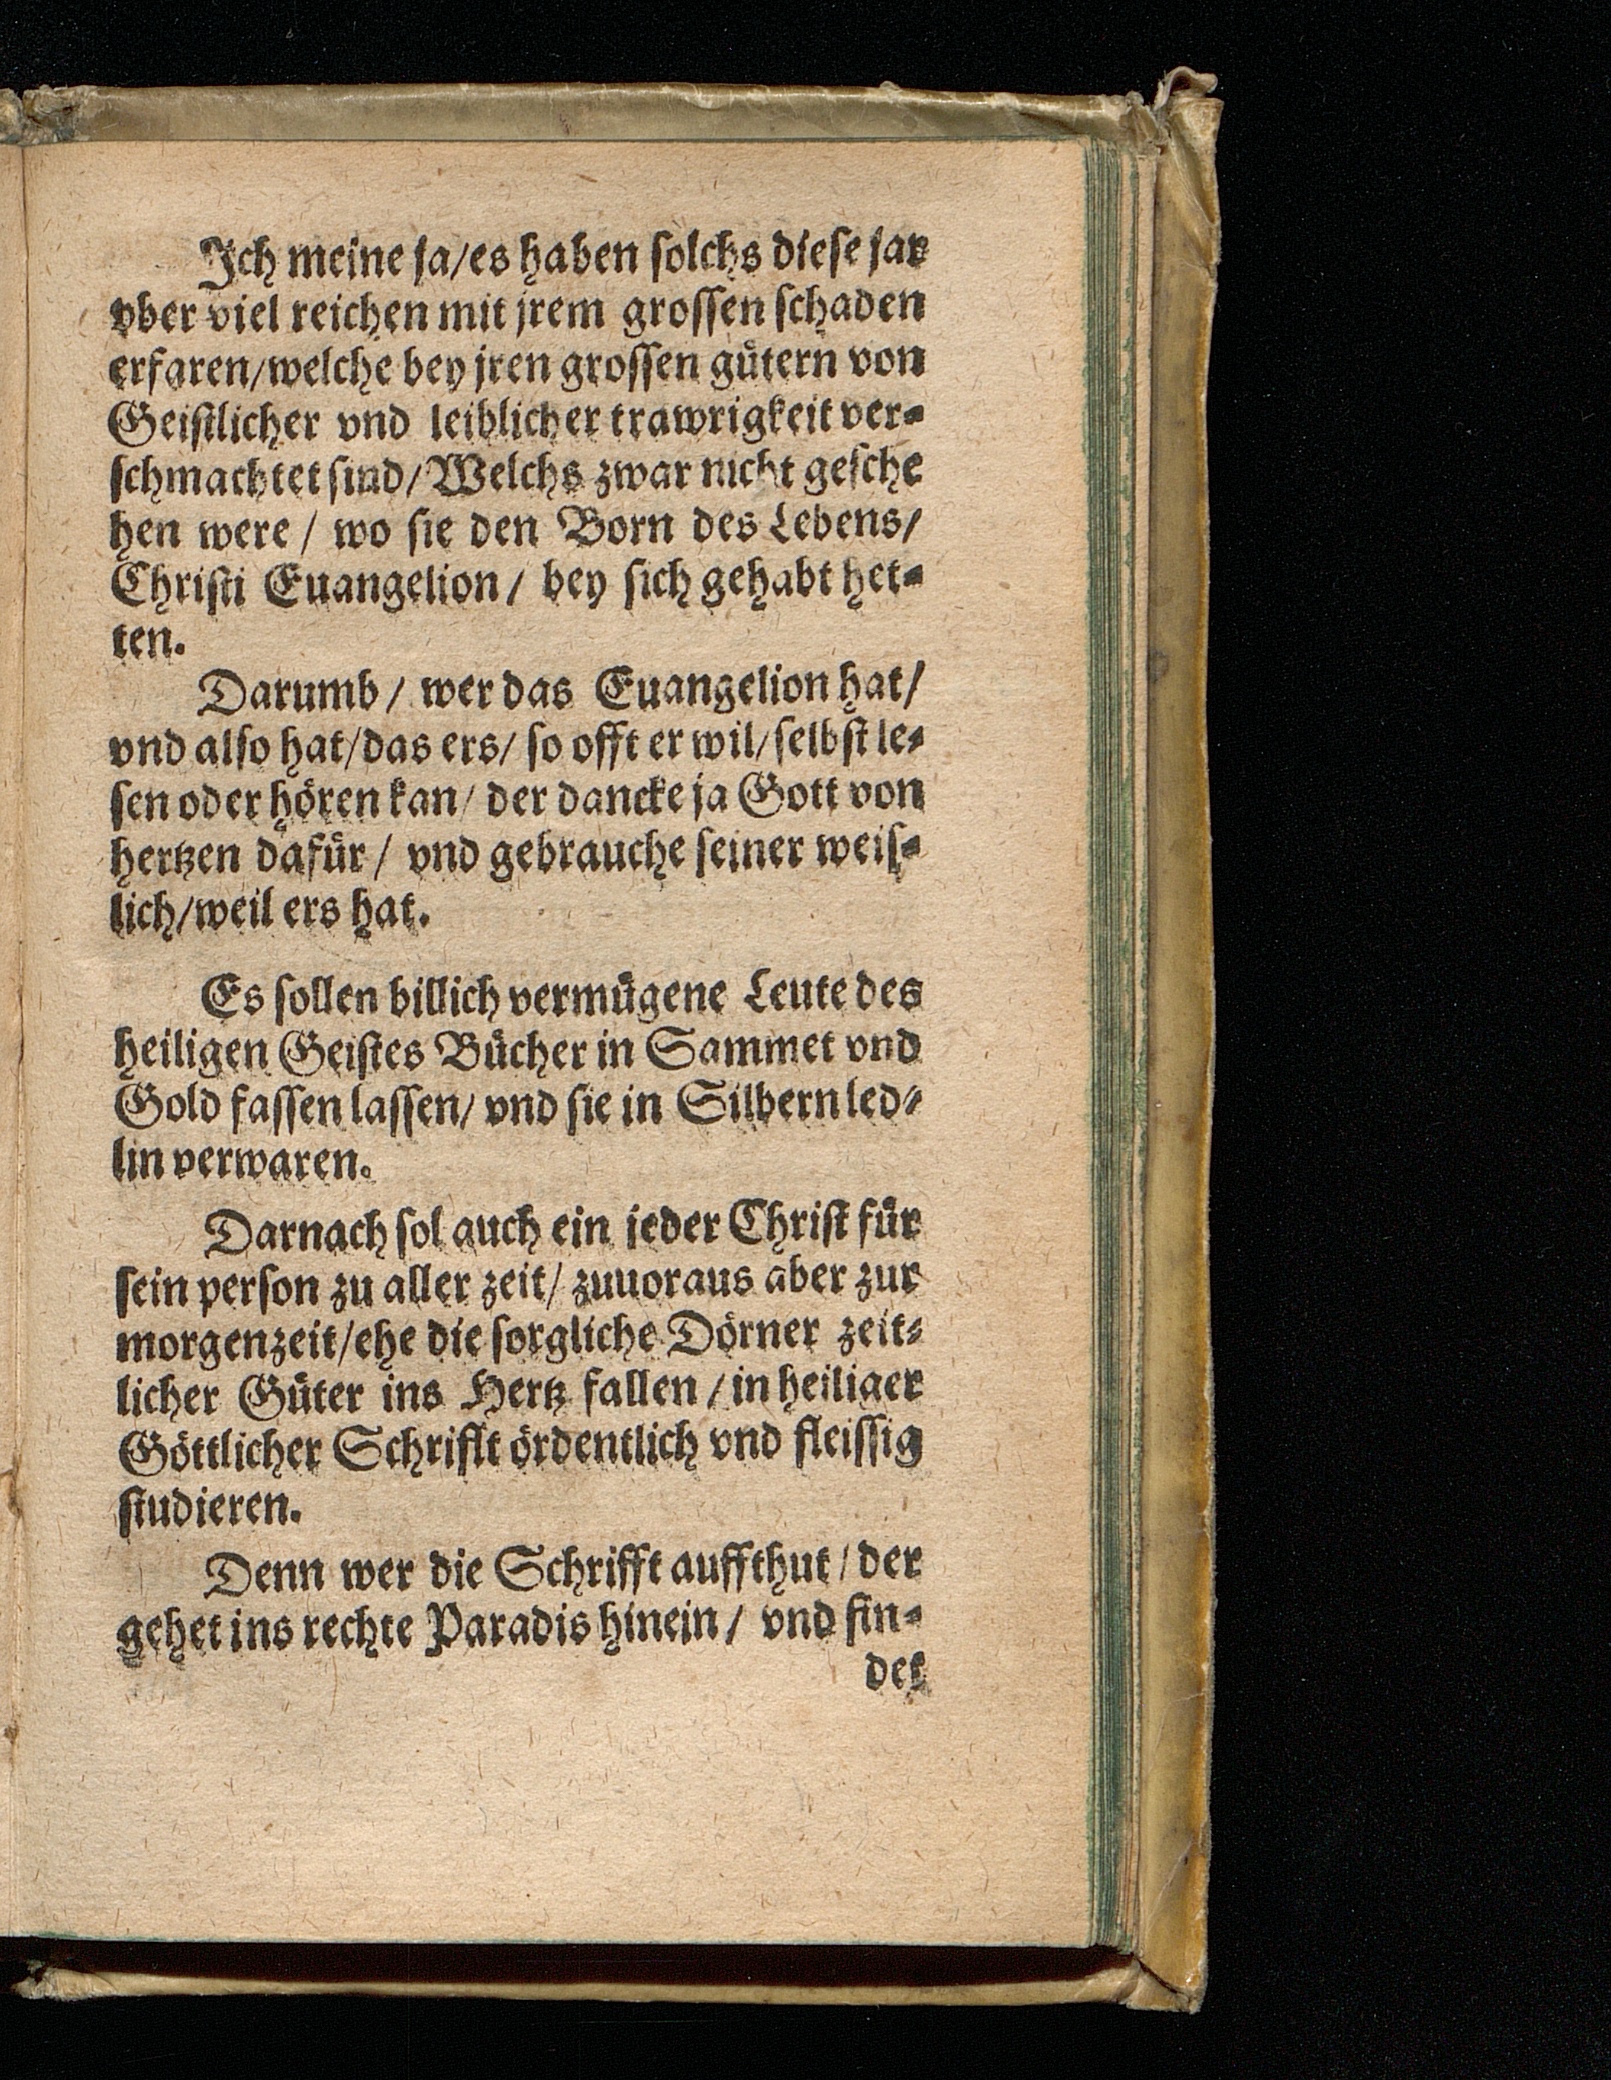 Ich meine ja/es haben ſolchs dieſe jar
vber viel reichen mit jrem groſſen ſchaden
erfaren/welche bey jren groſſen guͤtern von
Geiſtlicher vnd leiblicher trawrigkeit ver⸗
ſchmachtet ſind/Welchs zwar nicht geſche
hen were/ wo ſie den Born des Lebens/
Chriſti Euangelion/ bey ſich gehabt het⸗
ten.
Darumb/ wer das Euangelion hat/
vnd alſo hat/das ers/ ſo offt er wil/ſelbſt le⸗
ſen oder hoͤren kan/ der dancke ja Gott von
hertzen dafuͤr/ vnd gebrauche ſeiner weiſ⸗
lich/weil ers hat.
Es ſollen billich vermuͤgene Leute des
heiligen Geiſtes Buͤcher in Sammet vnd
Gold faſſen laſſen/ vnd ſie in Silbern led⸗
lin verwaren.
Darnach ſol auch ein jeder Chriſt fuͤr
ſein perſon zu aller zeit/ zuuoraus aber zur
morgenzeit/ehe die ſorgliche Doͤrner zeit⸗
licher Guͤter ins Hertz fallen/in heiliger
Goͤttlicher Schrifft oͤrdentlich vnd fleiſſig
ſtudieren.
Denn wer die Schrifft auffthut/der
gehet ins rechte Paradis hinein/ vnd fin⸗
det